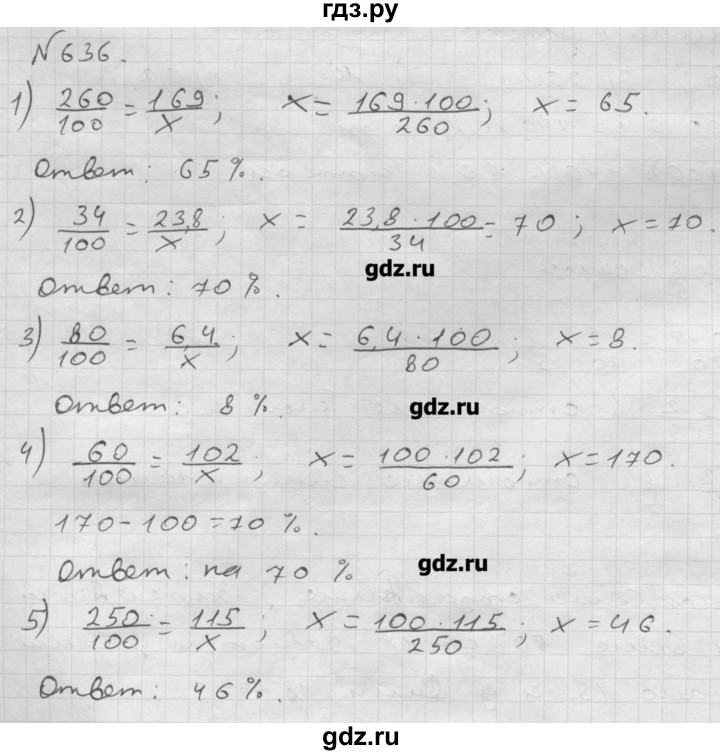 гдз.ру
№636.
1) 260/100 = 169/x; x = 169·100/260; x = 65.
Ответ: 65%.
2) 34/100 = 23,8/x; x = 23,8·100/34 = 70; x = 70.
gdz.ru
Ответ: 70%.
3) 80/100 = 6,4/x; x = 6,4·100/80; x = 8.
Ответ: 8%.
gdz.ru
4) 60/100 = 102/x; x = 100·102/60; x = 170.
170-100=70%.
Ответ: на 70%
gdz.ru
5) 250/100 = 115/x; x = 100·115/250; x = 46.
Ответ: 46%.
gdz.ru